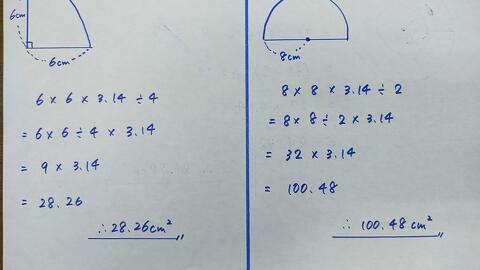 6cm
6cm
6 × 6 × 3.14 ÷ 4
= 6 × 6 ÷ 4 × 3.14
= 9 × 3.14
= 28.26
∴ 28.26cm²
8cm
8 × 8 × 3.14 ÷ 2
= 8 × 8 ÷ 2 × 3.14
= 32 × 3.14
= 100.48
∴ 100.48cm²